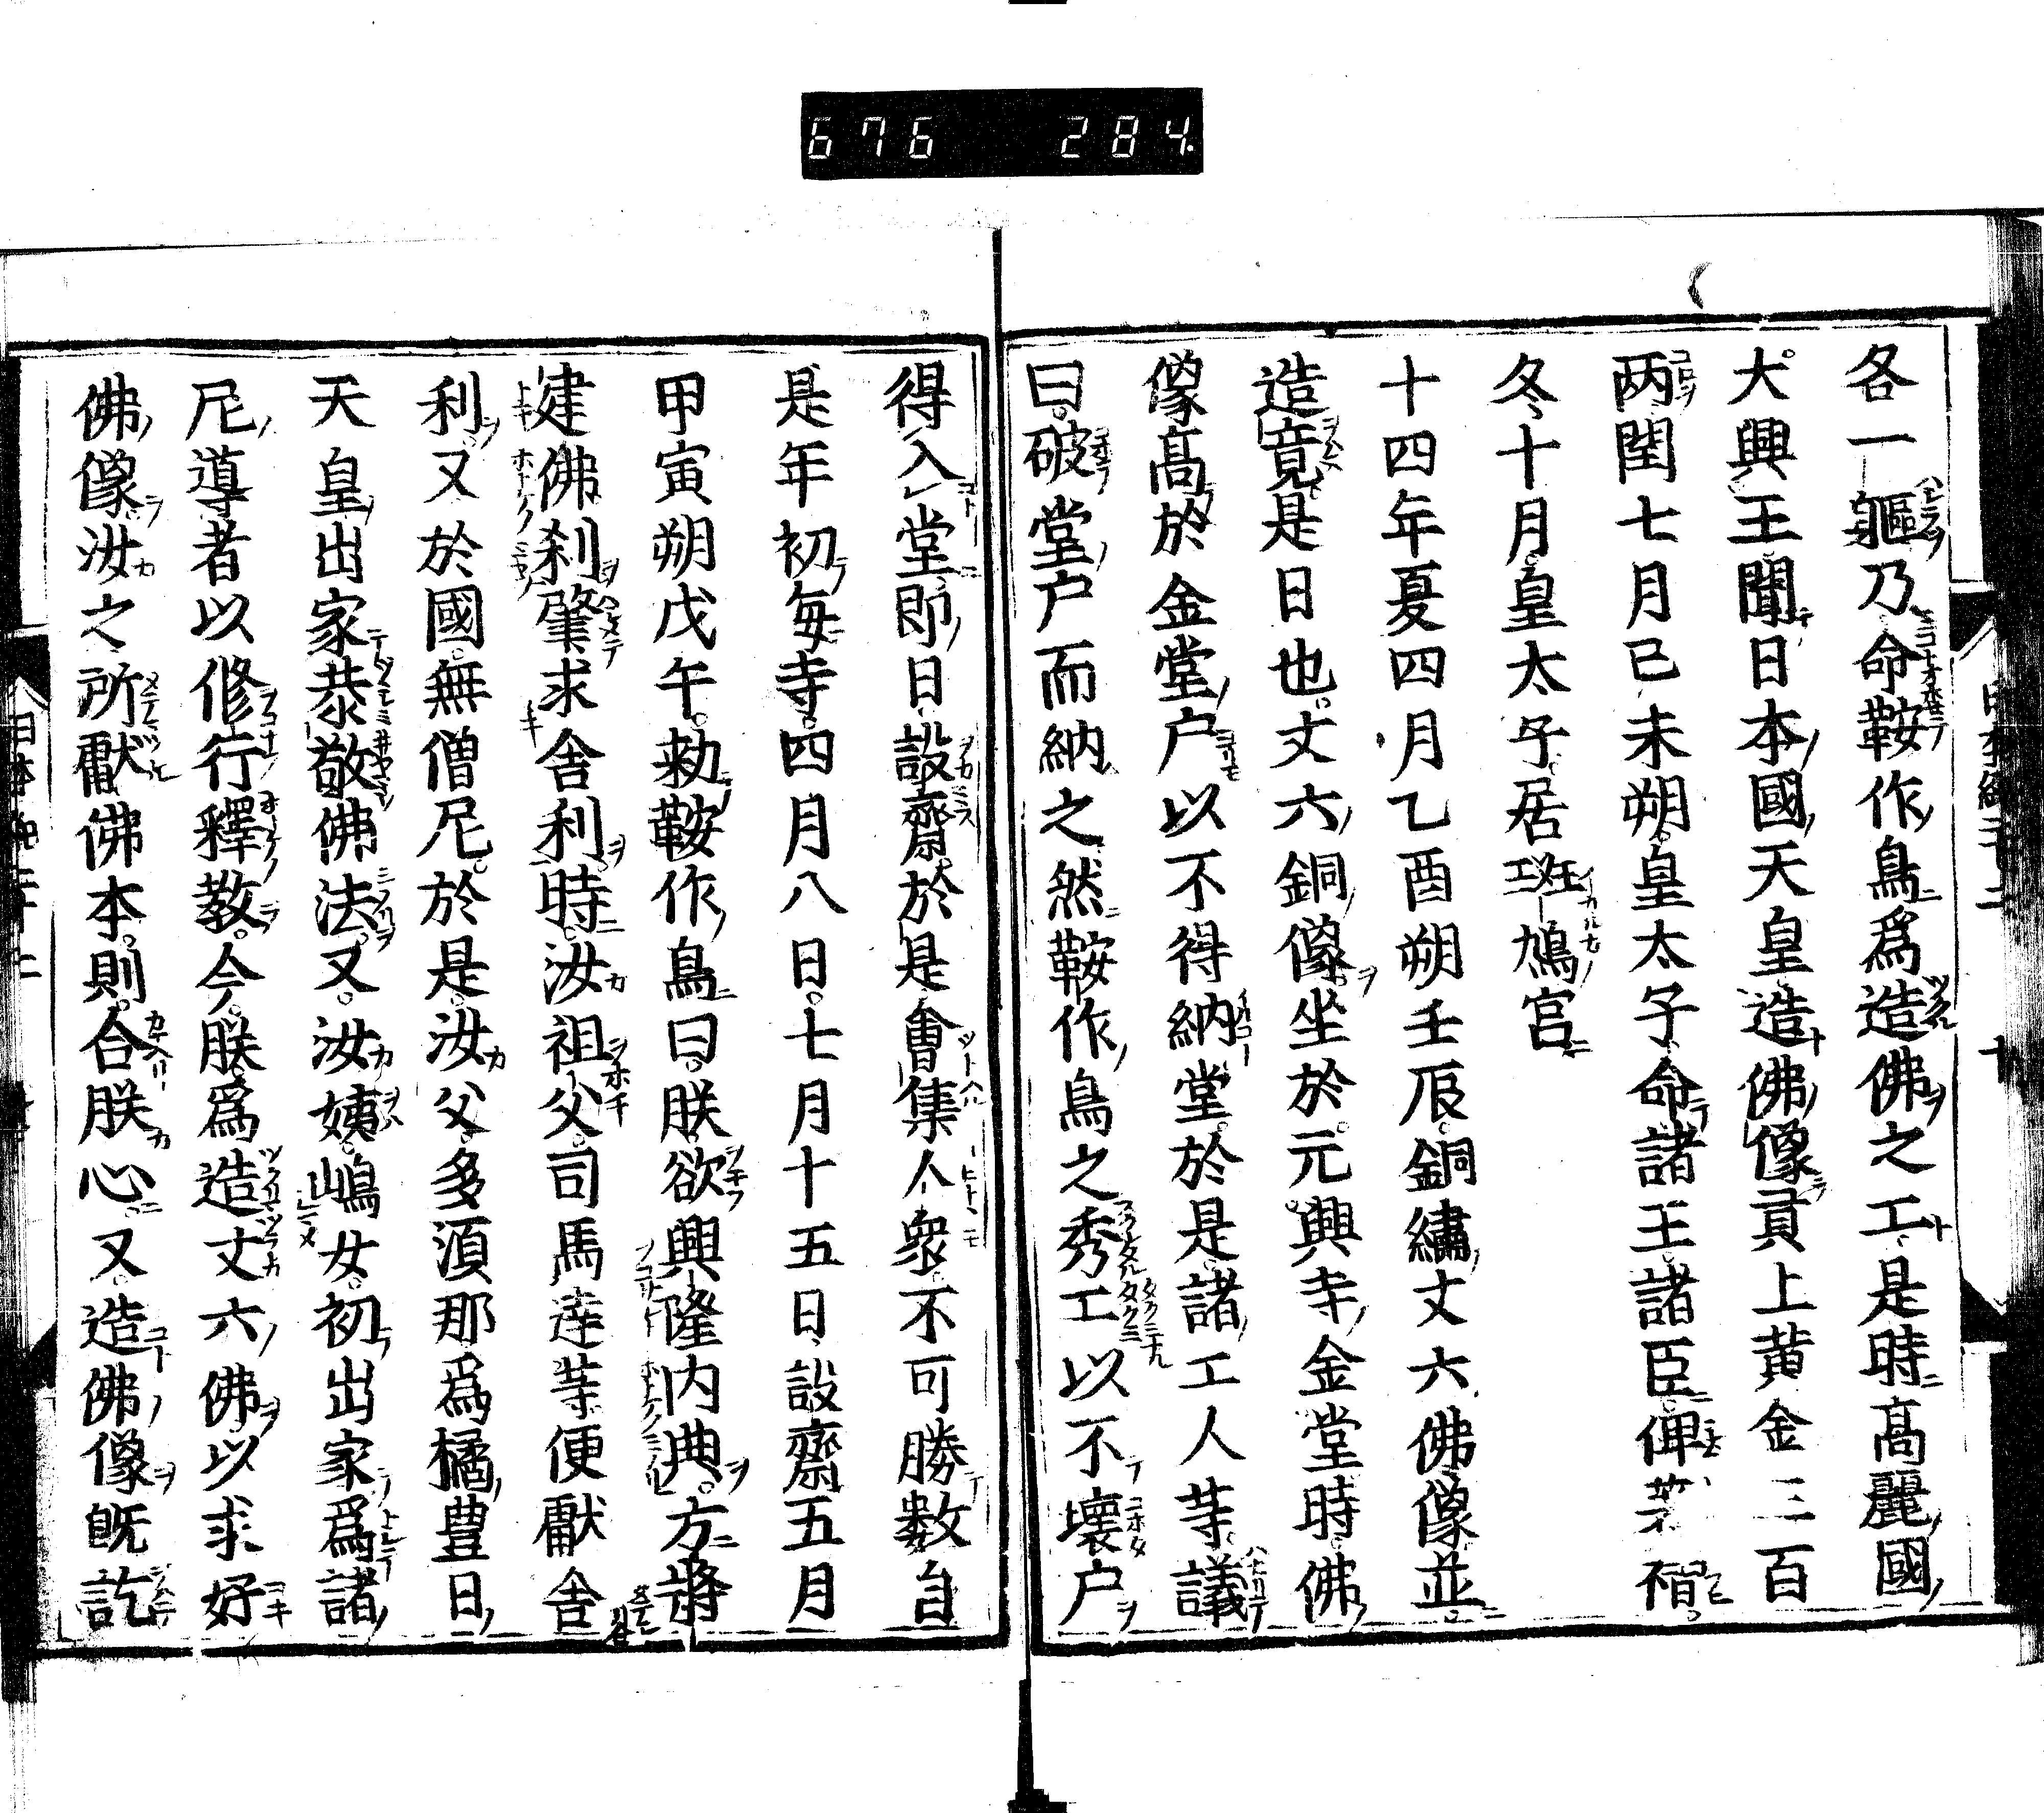 676 284.
各一軀乃命鞍作鳥爲造佛之工是時高麗國
大興王聞日本國天皇造佛像貢上黄金三百
两閏七月己未朔皇太子命諸王諸臣俾著褶
冬十月皇太子居斑鳩宮
十四年夏四月乙酉朔壬辰銅繡丈六佛像並
造竟是日也丈六銅像坐於元興寺金堂時佛
像高於金堂户以不得納堂於是諸工人等議
曰破堂户而納之然鞍作鳥之秀工以不壞户
得入堂即日設齋於是會集人衆不可勝数自
是年初每寺四月八日七月十五日設齋五月
甲寅朔戊午勅鞍作鳥曰朕欲興隆内典方將
建佛刹肇求舎利時汝祖父司馬達等便獻舎
利又於國無僧尼於是汝父多須那爲橘豊日
天皇出家恭敬佛法又汝姨嶋女初出家爲諸
尼導者以修行釋教今朕爲造丈六佛以求好
佛像汝之所獻佛本則合朕心又造佛像既訖